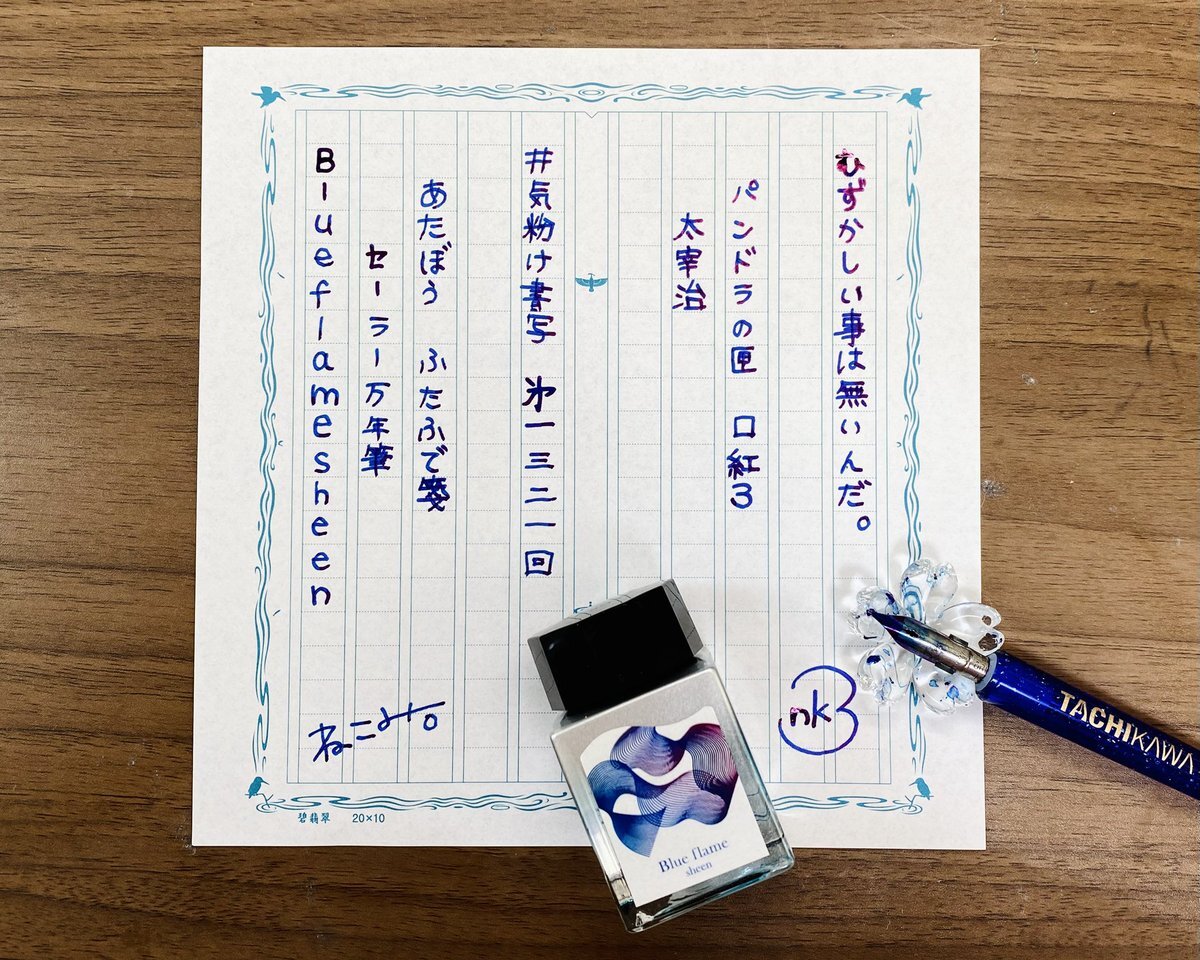 むずかしい事は無いんだ。
パンドラの匣　口紅3
太宰治
#気粉け書写　第一三二一回
あたぼう　ふたふで箋
セーラー万年筆
Blueflamesheen
ねこみ。
nk
碧翡翠 20×10
Blue flame
sheen
TACHIKAWA